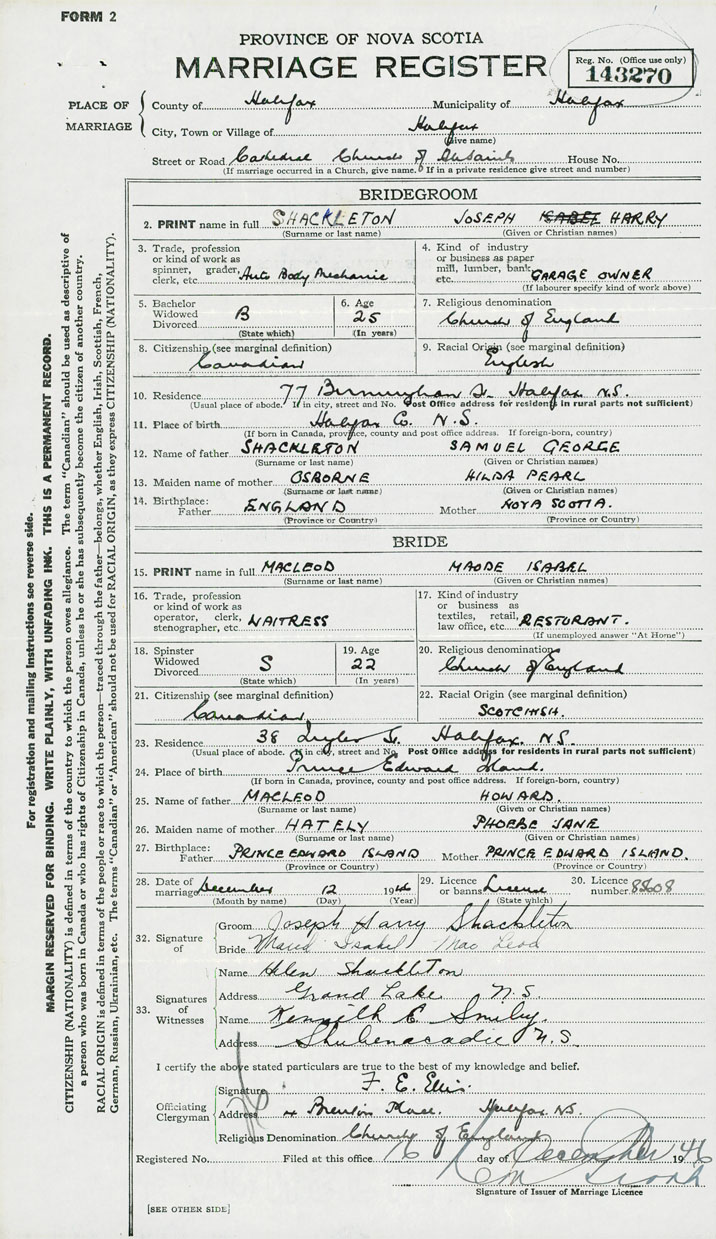 FORM 2
PROVINCE OF NOVA SCOTIA
MARRIAGE REGISTER
Reg. No. (Office use only)
143270
PLACE OF MARRIAGE
County of Halifax Municipality of Halifax
City, Town or Village of Halifax
(Give name)
Street or Road Cathedral Church of All Saints House No.
(If marriage occurred in a Church, give name. If in a private residence give street and number)
BRIDEGROOM
2. PRINT name in full SHACKLETON JOSEPH HARRY
(Surname or last name) (Given or Christian names)
3. Trade, profession or kind of work as spinner, grader, clerk, etc. Auto Body Mechanic
4. Kind of industry or business as paper mill, lumber, bank, etc. GARAGE OWNER
(If labourer specify kind of work above)
5. Bachelor Widowed Divorced B
(State which)
6. Age 25
(In years)
7. Religious denomination
Church of England
8. Citizenship (see marginal definition)
Canadian
9. Racial Origin (see marginal definition)
English
10. Residence 77 Birmingham St. Halifax N.S.
(Usual place of abode. If in city, street and No. Post Office address for residents in rural parts not sufficient)
11. Place of birth Halifax Co. N.S.
(If born in Canada, province, county and post office address. If foreign-born, country)
12. Name of father SHACKLETON SAMUEL GEORGE
(Surname or last name) (Given or Christian names)
13. Maiden name of mother OSBORNE HILDA PEARL
(Surname or last name) (Given or Christian names)
14. Birthplace: Father ENGLAND Mother NOVA SCOTIA.
(Province or Country) (Province or Country)
BRIDE
15. PRINT name in full MACLEOD MAUDE ISABEL
(Surname or last name) (Given or Christian names)
16. Trade, profession or kind of work as operator, clerk, stenographer, etc. WAITRESS
17. Kind of industry or business as textiles, retail, law office, etc. RESTURANT.
(If unemployed answer "At Home")
18. Spinster Widowed Divorced S
(State which)
19. Age 22
(In years)
20. Religious denomination
Church of England
21. Citizenship (see marginal definition)
Canadian
22. Racial Origin (see marginal definition)
SCOTCHISH.
23. Residence 38 St. Halifax. N.S.
(Usual place of abode. If in city, street and No. Post Office address for residents in rural parts not sufficient)
24. Place of birth Prince Edward Island.
(If born in Canada, province, county and post office address. If foreign-born, country)
25. Name of father MACLEOD HOWARD.
(Surname or last name) (Given or Christian names)
26. Maiden name of mother HATELY PHOEBE JANE
(Surname or last name) (Given or Christian names)
27. Birthplace: Father PRINCE EDWARD ISLAND Mother PRINCE EDWARD ISLAND.
(Province or Country) (Province or Country)
28. Date of marriage December 12 1946
(Month by name) (Day) (Year)
29. Licence or banns License
(State which)
30. Licence number
32. Signature of
Groom Joseph Harry Shackleton
Bride Maud Isabel MacLeod
33. Signatures of Witnesses
Name Helen Shackleton
Address Grand Lake N.S.
Name Kenneth E. Smiley.
Address Shubenacadie N.S.
I certify the above stated particulars are true to the best of my knowledge and belief.
Officiating Clergyman
Signature F. E. Ellis.
Address Brenton Place. Halifax. N.S.
Religious Denomination Church of England
Registered No. Filed at this office 16 day of December 1946
Signature of Issuer of Marriage Licence
[SEE OTHER SIDE]
For registration and mailing instructions see reverse side.
MARGIN RESERVED FOR BINDING. WRITE PLAINLY, WITH UNFADING INK. THIS IS A PERMANENT RECORD.
CITIZENSHIP (NATIONALITY) is defined in terms of the country to which the person owes allegiance. The term "Canadian" should be used as descriptive of
a person who was born in Canada or who has rights of Citizenship in Canada, unless he or she has subsequently become the citizen of another country.
RACIAL ORIGIN is defined in terms of the people or race to which the person—traced through the father—belongs, whether English, Irish, Scottish, French,
German, Russian, Ukrainian, etc. The terms "Canadian" or "American" should not be used for RACIAL ORIGIN, as they express CITIZENSHIP (NATIONALITY).